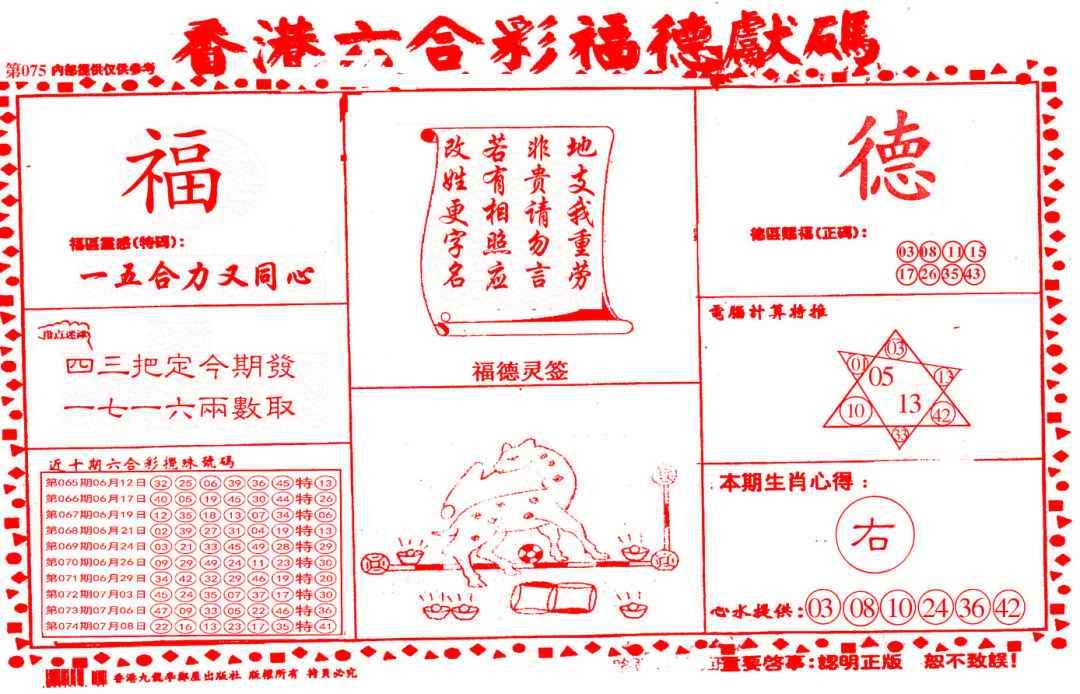 香港六合彩福德獻碼
第075 内部提供仅供参考
福
福區靈感(特碼):
一五合力又同心
指点迷津
四三把定今期發
一七一六兩數取
近十期六合彩攪珠號碼
第065期06月12日 32 25 06 39 36 45 特 13
第066期06月17日 40 05 19 45 30 44 特 26
第067期06月19日 12 35 18 13 07 34 特 06
第068期06月21日 02 39 27 31 04 19 特 13
第069期06月24日 03 21 33 45 49 28 特 29
第070期06月26日 09 29 49 24 11 23 特 30
第071期06月29日 34 42 32 29 46 19 特 20
第072期07月03日 45 24 35 07 37 17 特 30
第073期07月06日 47 09 33 05 22 46 特 36
第074期07月08日 22 16 13 23 17 35 特 41
地支我重劳
非贵请勿言
若有相照应
改姓更字名
福德灵签
德
德區賜福(正碼):
03 08 11 15
17 26 35 43
電腦計算特推
03
01 05 13
10 13 42
33
本期生肖心得:
右
心水提供: 03 08 10 24 36 42
香港九龍學鄰屋出版社 版權所有 持員必究
重要啓事:認明正版 恕不致誤!